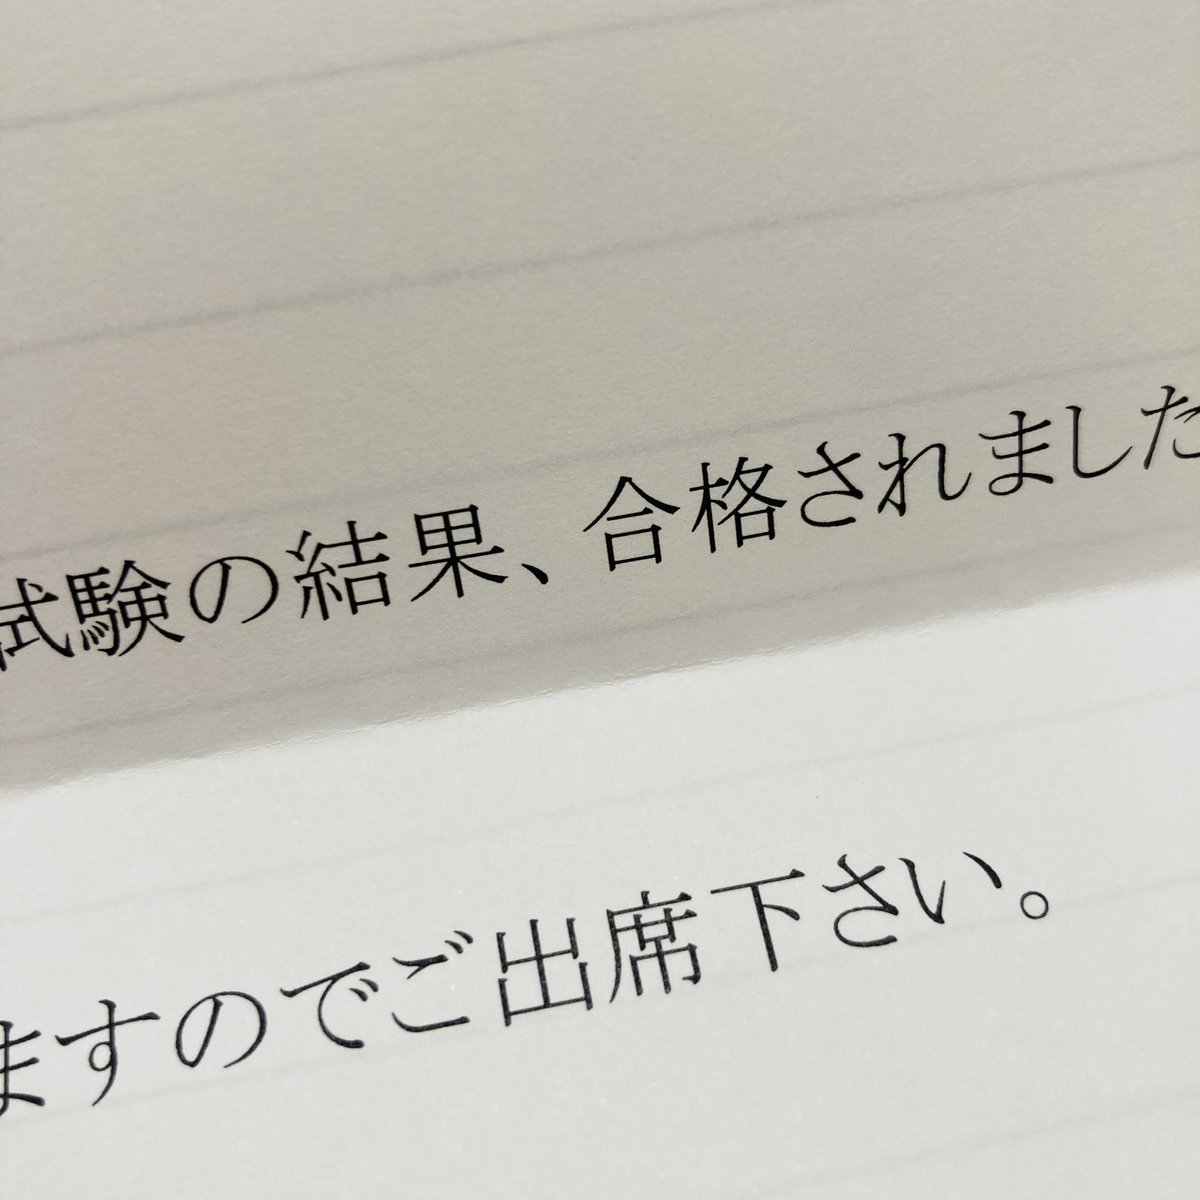 試験の結果、合格されました
ますのでご出席下さい。